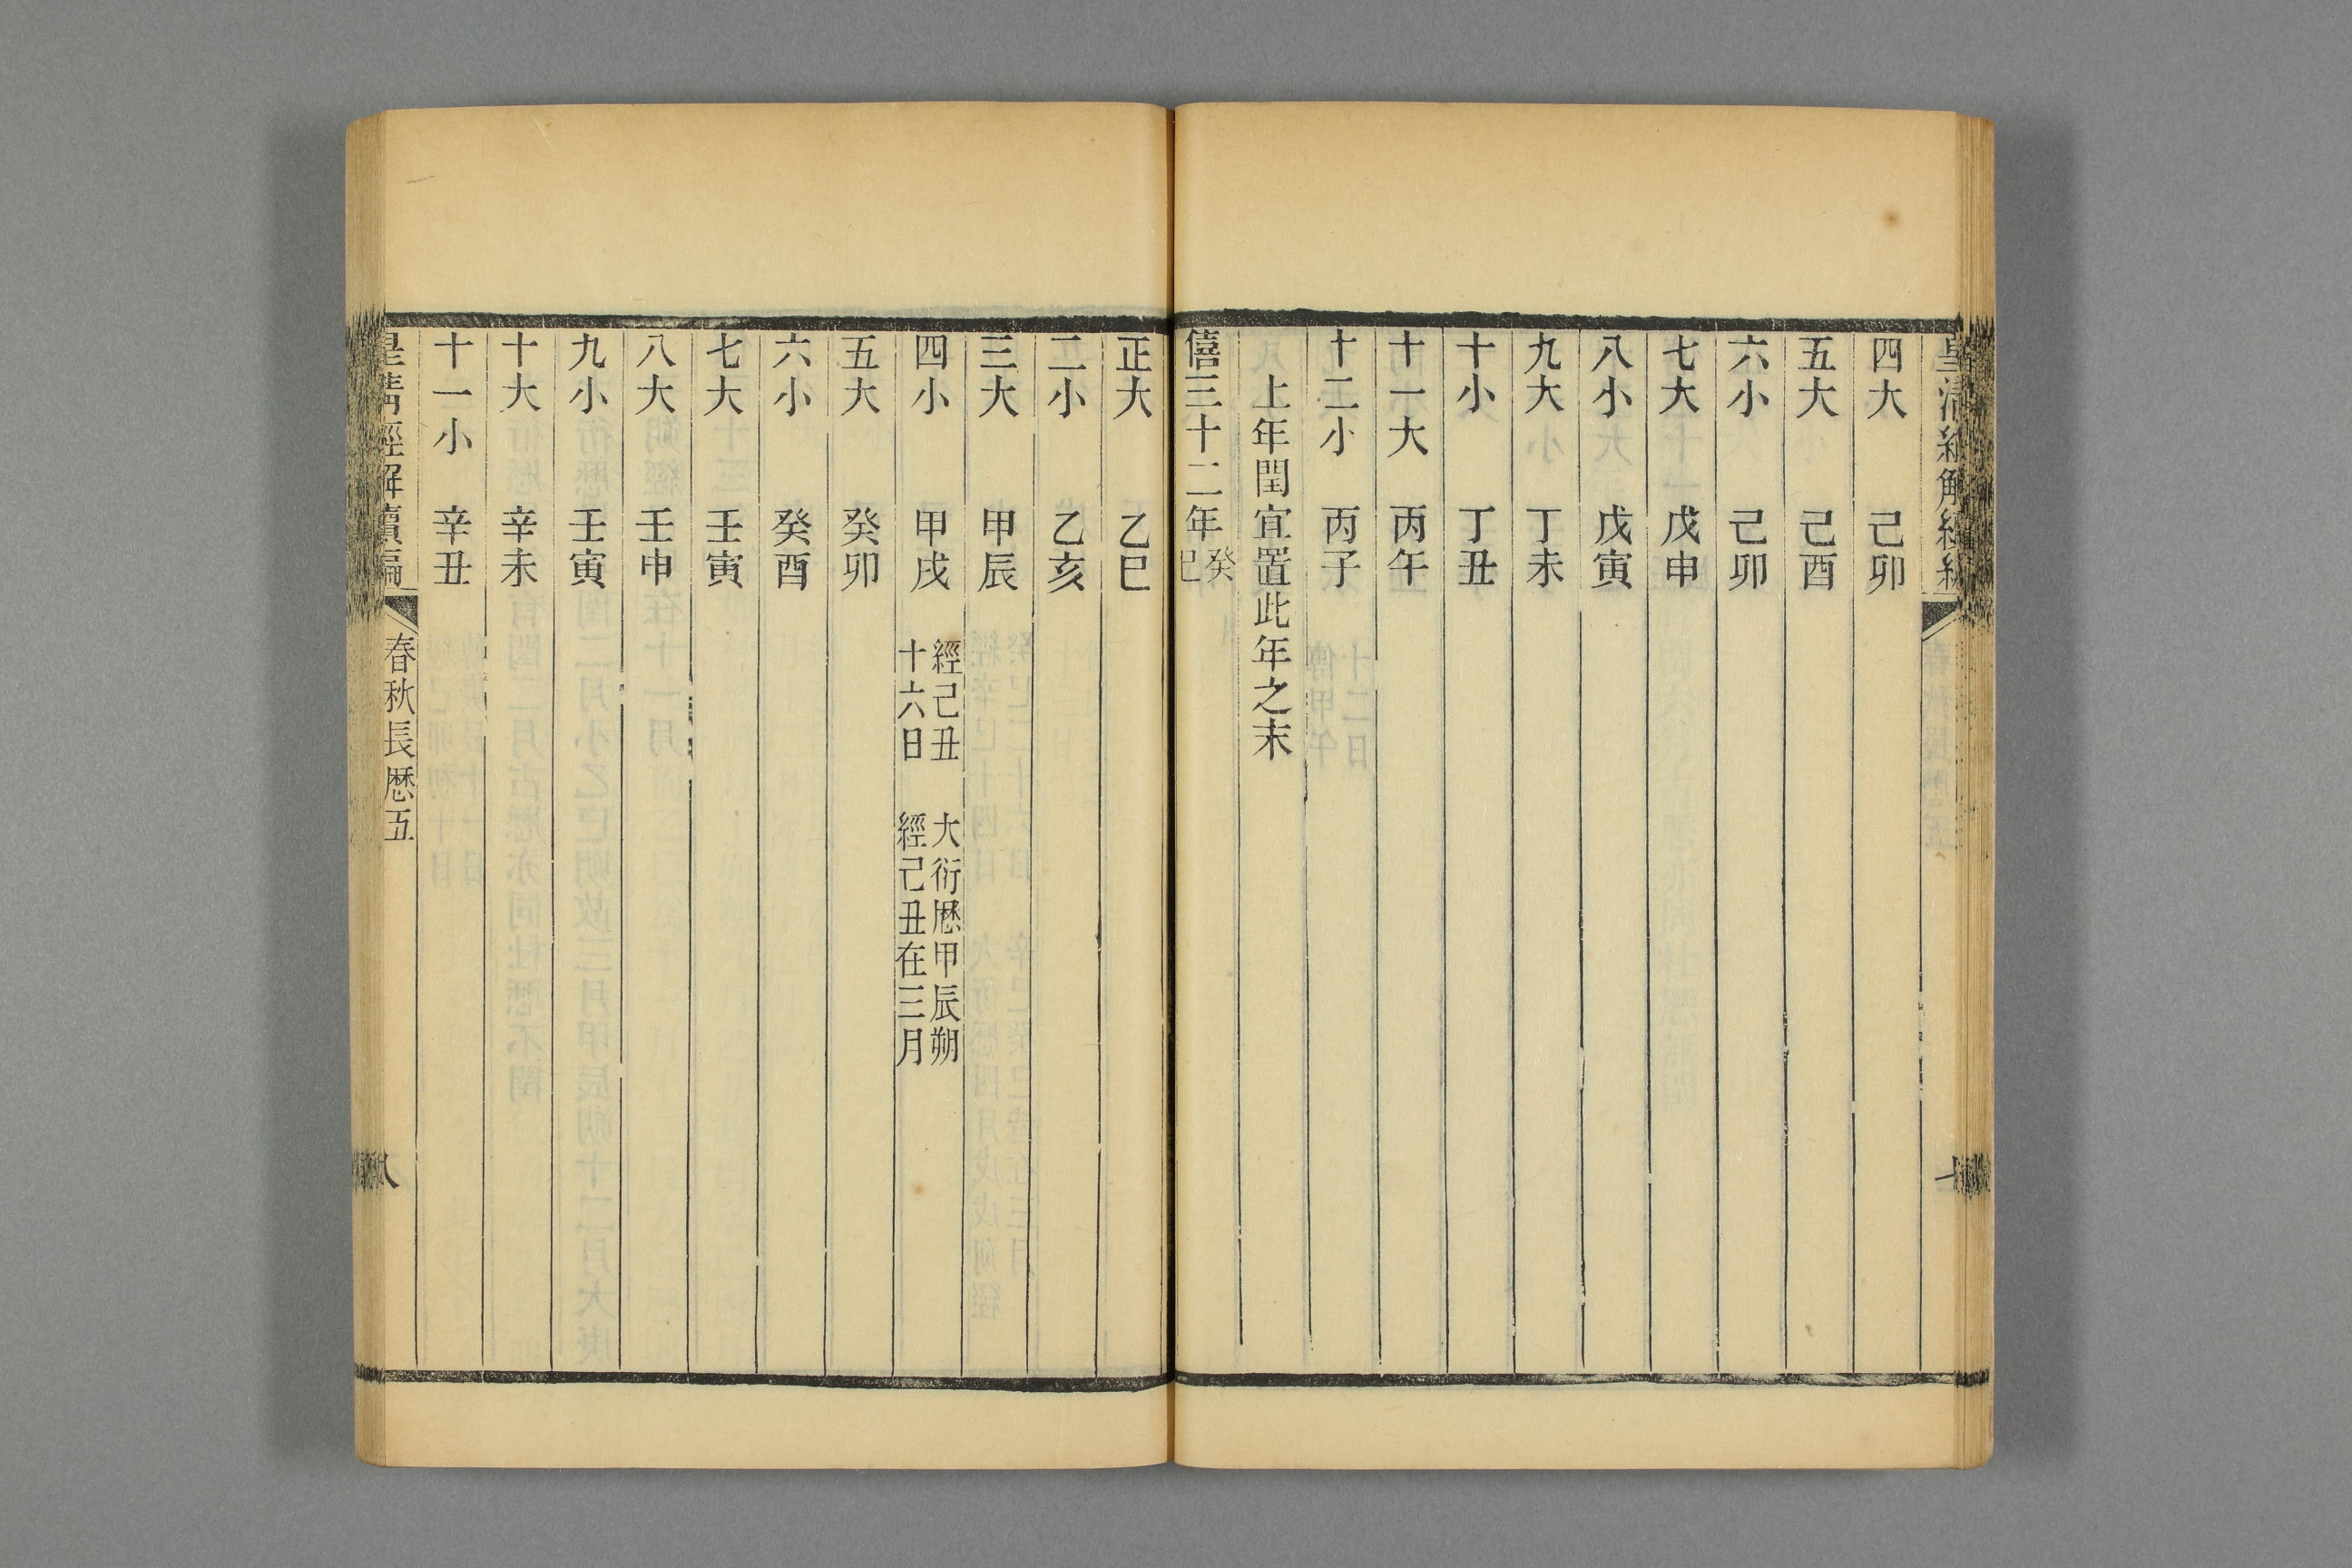 皇清經解續編
七
四大 己卯
五大 己酉
六小 己卯
七大 戊申
八小 戊寅
九大 丁未
十小 丁丑
十一大 丙午
十二小 丙子
上年閏宜置此年之末
僖三十二年癸巳
正大 乙巳
二小 乙亥
三大 甲辰
四小 甲戌 經己丑
十六日 大衍厯甲辰朔
經己丑在三月
五大 癸卯
六小 癸酉
七大 壬寅
八大 壬申
九小 壬寅
十大 辛未
十一小 辛丑
皇清經解續編 春秋長厯五
八